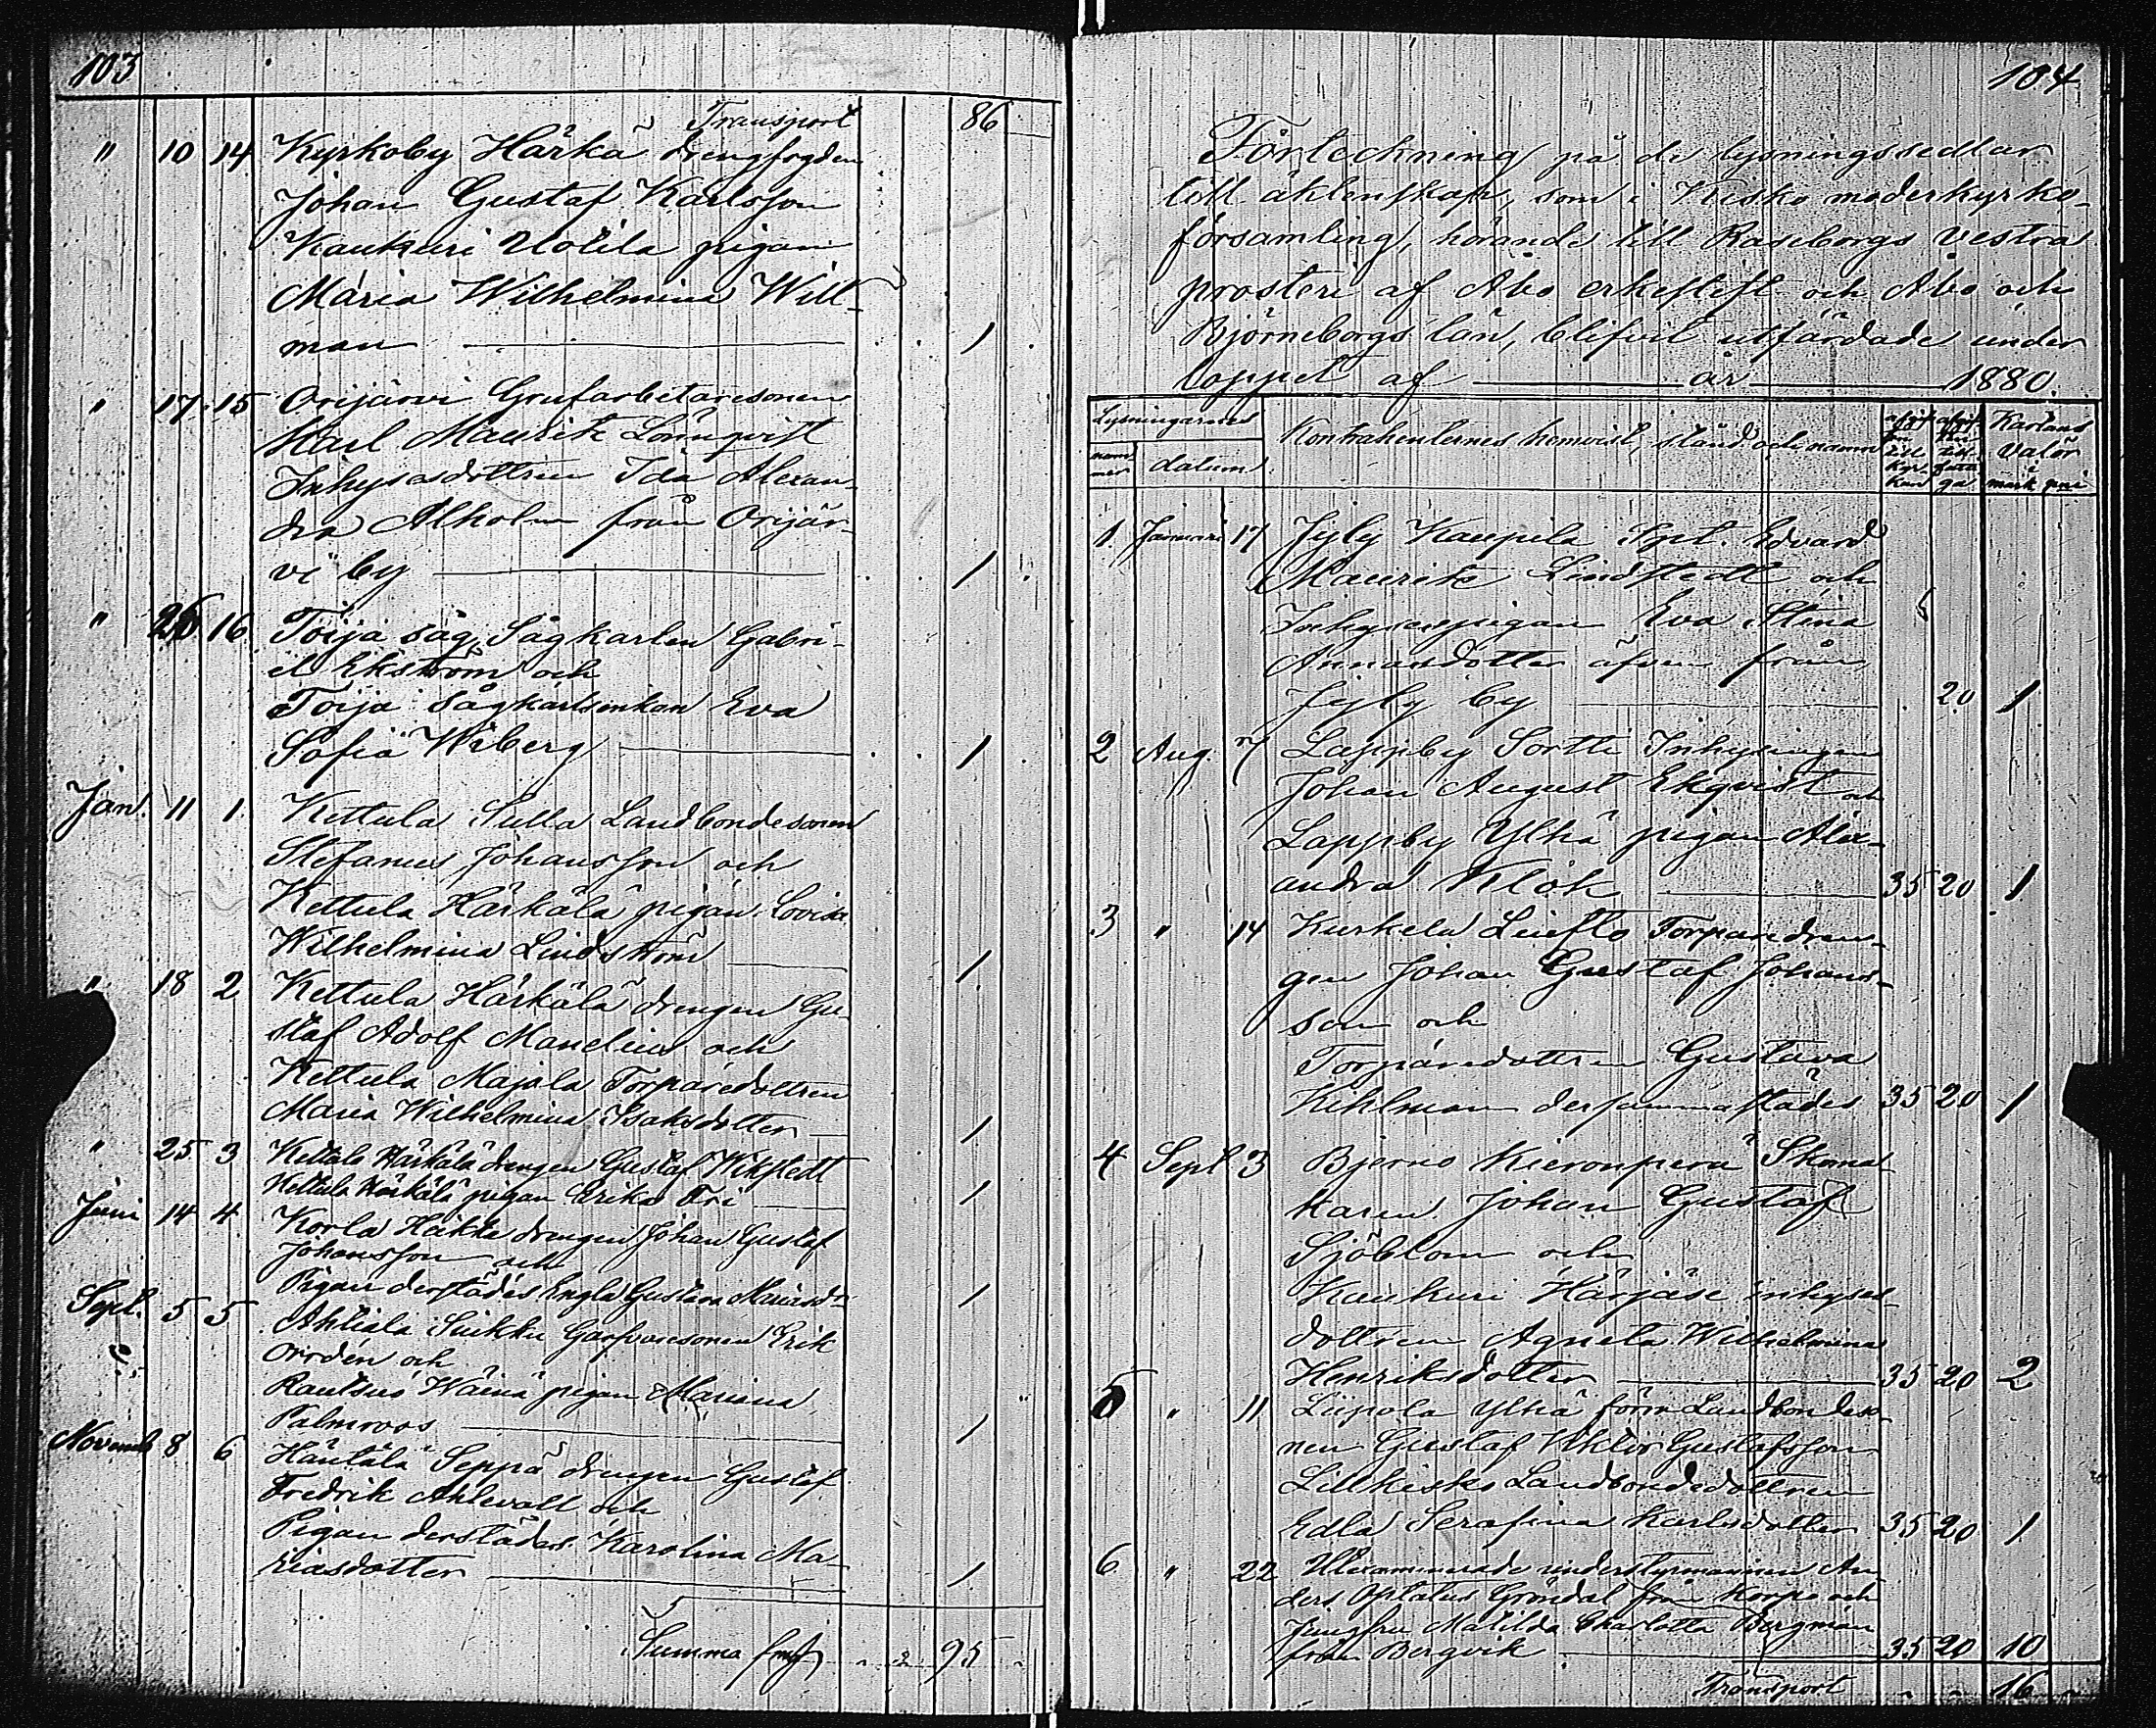 103
Transport 86
" 10 14 Kyrkoby Härkä drengfogden
Johan Gustaf Karlsson
Kaukuri Uotila pigan
Maria Wilhelmina Will-
man 1
" 17 15 Orijärvi Grufarbetaresonen
Karl Maurits Lönnqvist
Inhysesdottren Ida Alexan-
dra Alholm från Orijär-
vi by 1
" 26 16 Toija såg Sågkarlen Gabri-
el Ekström och
Toija sågkarlsenkan Eva
Sofia Wiberg 1
Jan. 11 1. Kettula Sulla Landbondesonen
Stefanus Johansson och
Kettula Härkälä pigan Lovisa
Wilhelmina Lindström 1.
" 18 2 Kettula Härkälä drengen Gu-
staf Adolf Manelius och
Kettula Majala Torparedottren
Maria Wilhelmina Isaksdotter 1
" 25 3 Kettula Härkälä drengen Gustaf Wikstedt
Kettula Härkälä pigan Erika Fri 1
Juni 14 4 Korla Hakke drengen Johan Gustaf
Johansson och
Pigan derstädes Engla Gustava Mariasdr 1
Sept. 5 5 Ahtiala Suikku Garfvaresonen Erik
Orrdén och
Rautsuo Wäinä pigan Mariana
Palmroos 1
Novemb 8 6 Häntälä Seppä drengen Gustaf
Fredrik Ahlevall och
Pigan derstädes Karolina Ma-
riasdotter 1.
Summa fmf 95
104
Förteckning på de lysningssedlar
till äktenskap, som i Kisko moderkyrko-
församling, hörande till Raseborgs vestra
prosteri af Åbo erkestift och Åbo och
Björneborgs län, blifvit utfärdade under
loppet af år 1880.
Lysningarnes Kontrahenternes hemvist, stånd och namn Karlans
num-
mer datum valör
mark pni
1. Januari 17 Jyly Kaupila Spt. Edvard
Maurits Lindstedt och
Inhysespigan Eva Stina
Annasdotter äfven från
Jyly by 20 1
2 Aug. 7 Lappby Sortti Inhysingen
Johan August Ekqvist och
Lappby Yltä pigan Alex-
andra Klök 35 20 1
3 " 14 Kurkela Torparedren-
gen Johan Gustaf Johans-
son och
Torparedottren Gustava
Kihlman dersammastädes 35 20 1
4 Sept 3 Bjerno Kieronperä Skoma-
karen Johan Gustaf
Sjöblom och
Kaukuri Härjäse inhyses-
dottren Agneta Wilhelmina
Henriksdotter 35 20 2
5 " 11 Liipola Yltä förra Landbondeso-
nen Gustaf Viktor Gustafsson
Lillkisko Landbondedottren
Edla Serafina Karlsdotter 35 20 1
6 " 22 Utexaminerade understyrmannen An-
ders Optatus Gröndal från Korpo och
Jungfru Matilda Charlotta Bergman
från Bergvik 35 20 10
Transport 16